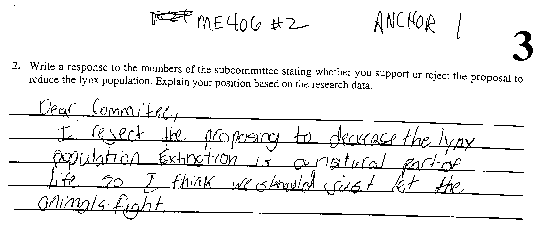 ME406 #2
ANCHOR 1
3
2. Write a response to the members of the subcommittee stating whether you support or reject the proposal to
reduce the lynx population. Explain your position based on the research data.
Dear Committee,
I reject the proposing to decrease the lynx
population Extinction is a natural part of
Life so I think we should just let the
animals fight.